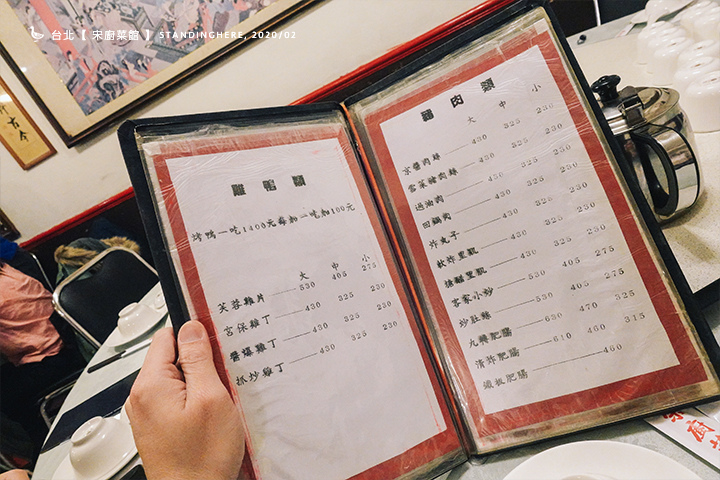 台北【 宋廚菜館 】 STANDINGHERE, 2020/02
雞鴨類
烤鴨一吃1400元每加一吃加100元
大 中 小
芙蓉雞片 530 405 275
宮保雞丁 430 325 230
醬爆雞丁 430 325 230
抓炒雞丁 430 325 230
豬肉類
大 中 小
京醬肉絲 430 325 230
雪菜辣肉絲 430 325 230
過油肉 430 325 230
回鍋肉 430 325 230
炸丸子 430 325 230
軟炸里肌 430 325 230
糖醋里肌 430 325 230
客家小炒 430 325 230
炒肚絲 530 405 275
九轉肥腸 530 405 275
清炸肥腸 630 470 325
鐵板肥腸 610 460 315
460